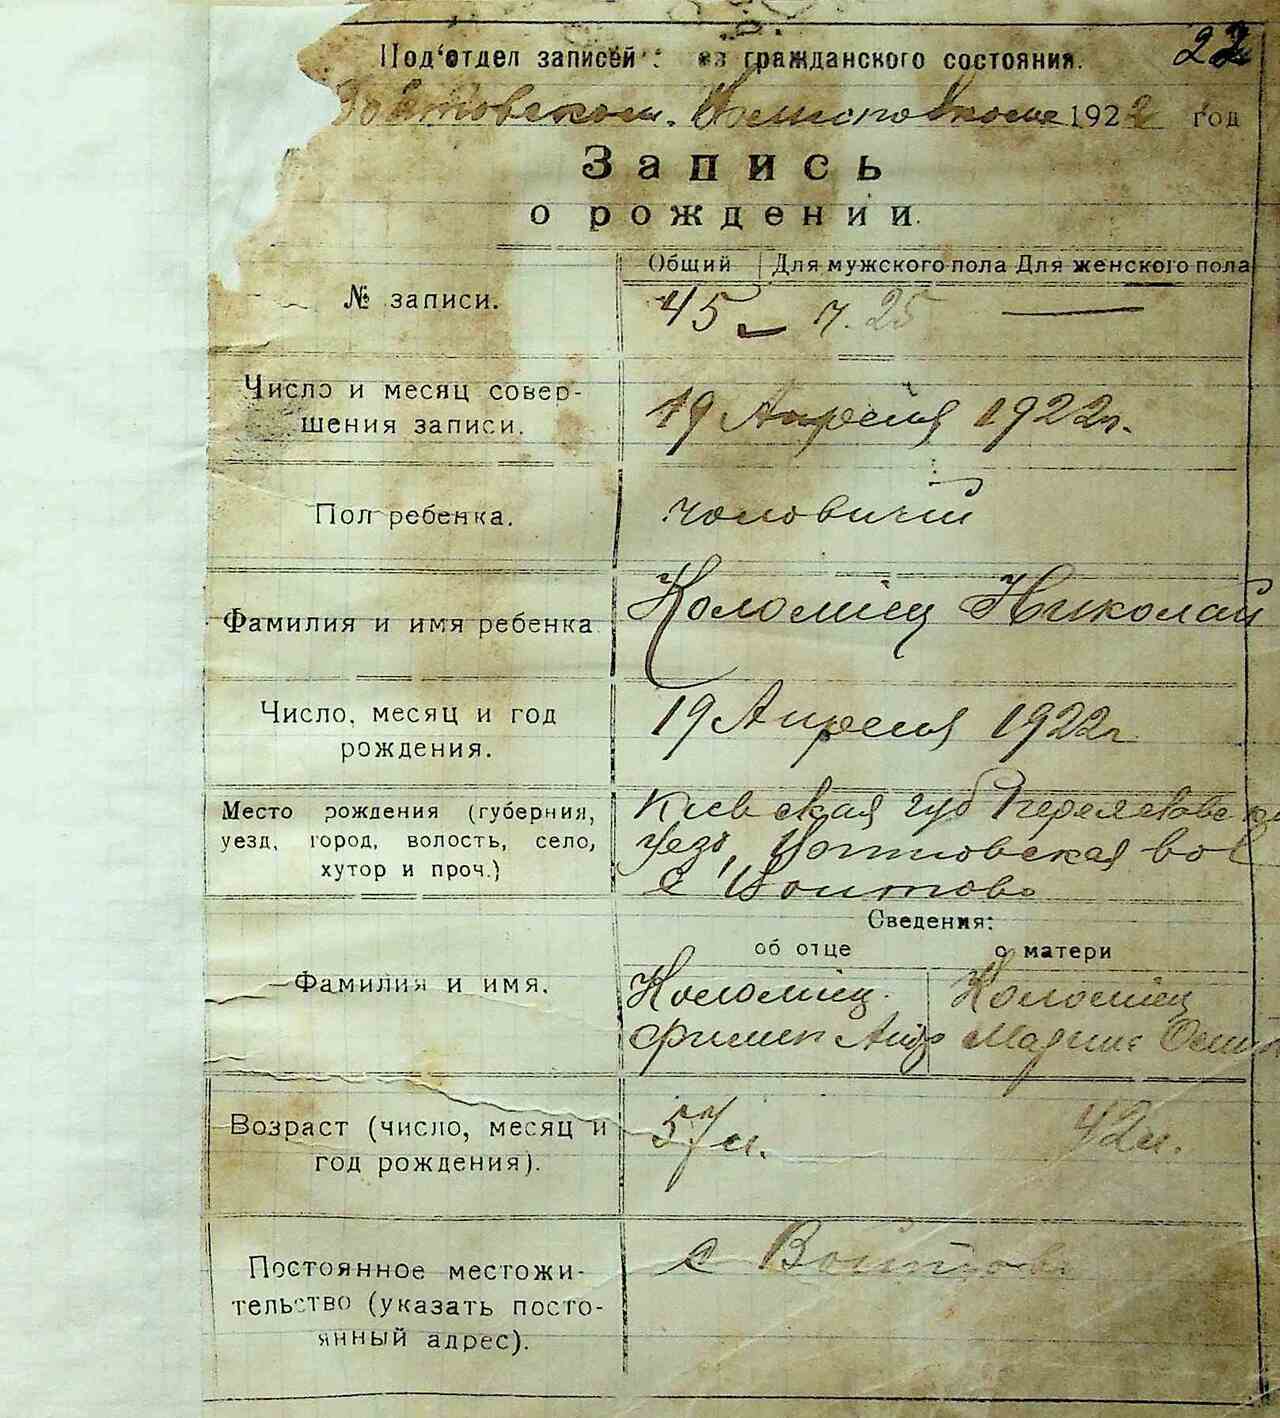 Под'отдел записей гражданского состояния. 22
1922 год
Запись
о рождении.
Общий Для мужского пола Для женского пола
№ записи. 45 – ч. 25 —
Число и месяц совер-
шения записи. 19 Апреля 1922г.
Пол ребенка. чоловичій
Фамилия и имя ребенка Коломіец Николай
Число, месяц и год
рождения. 19 Апреля 1922г
Место рождения (губерния, Киевская губ
уезд, город, волость, село, уезд, Войтовская вол
хутор и проч.) с Войтово
Сведения:
об отце о матери
Фамилия и имя. Коломіец Коломіец
Филип Андр
Возраст (число, месяц и
год рождения). 57 л. 42 л.
Постоянное местожи- с Войтово
тельство (указать посто-
янный адрес).